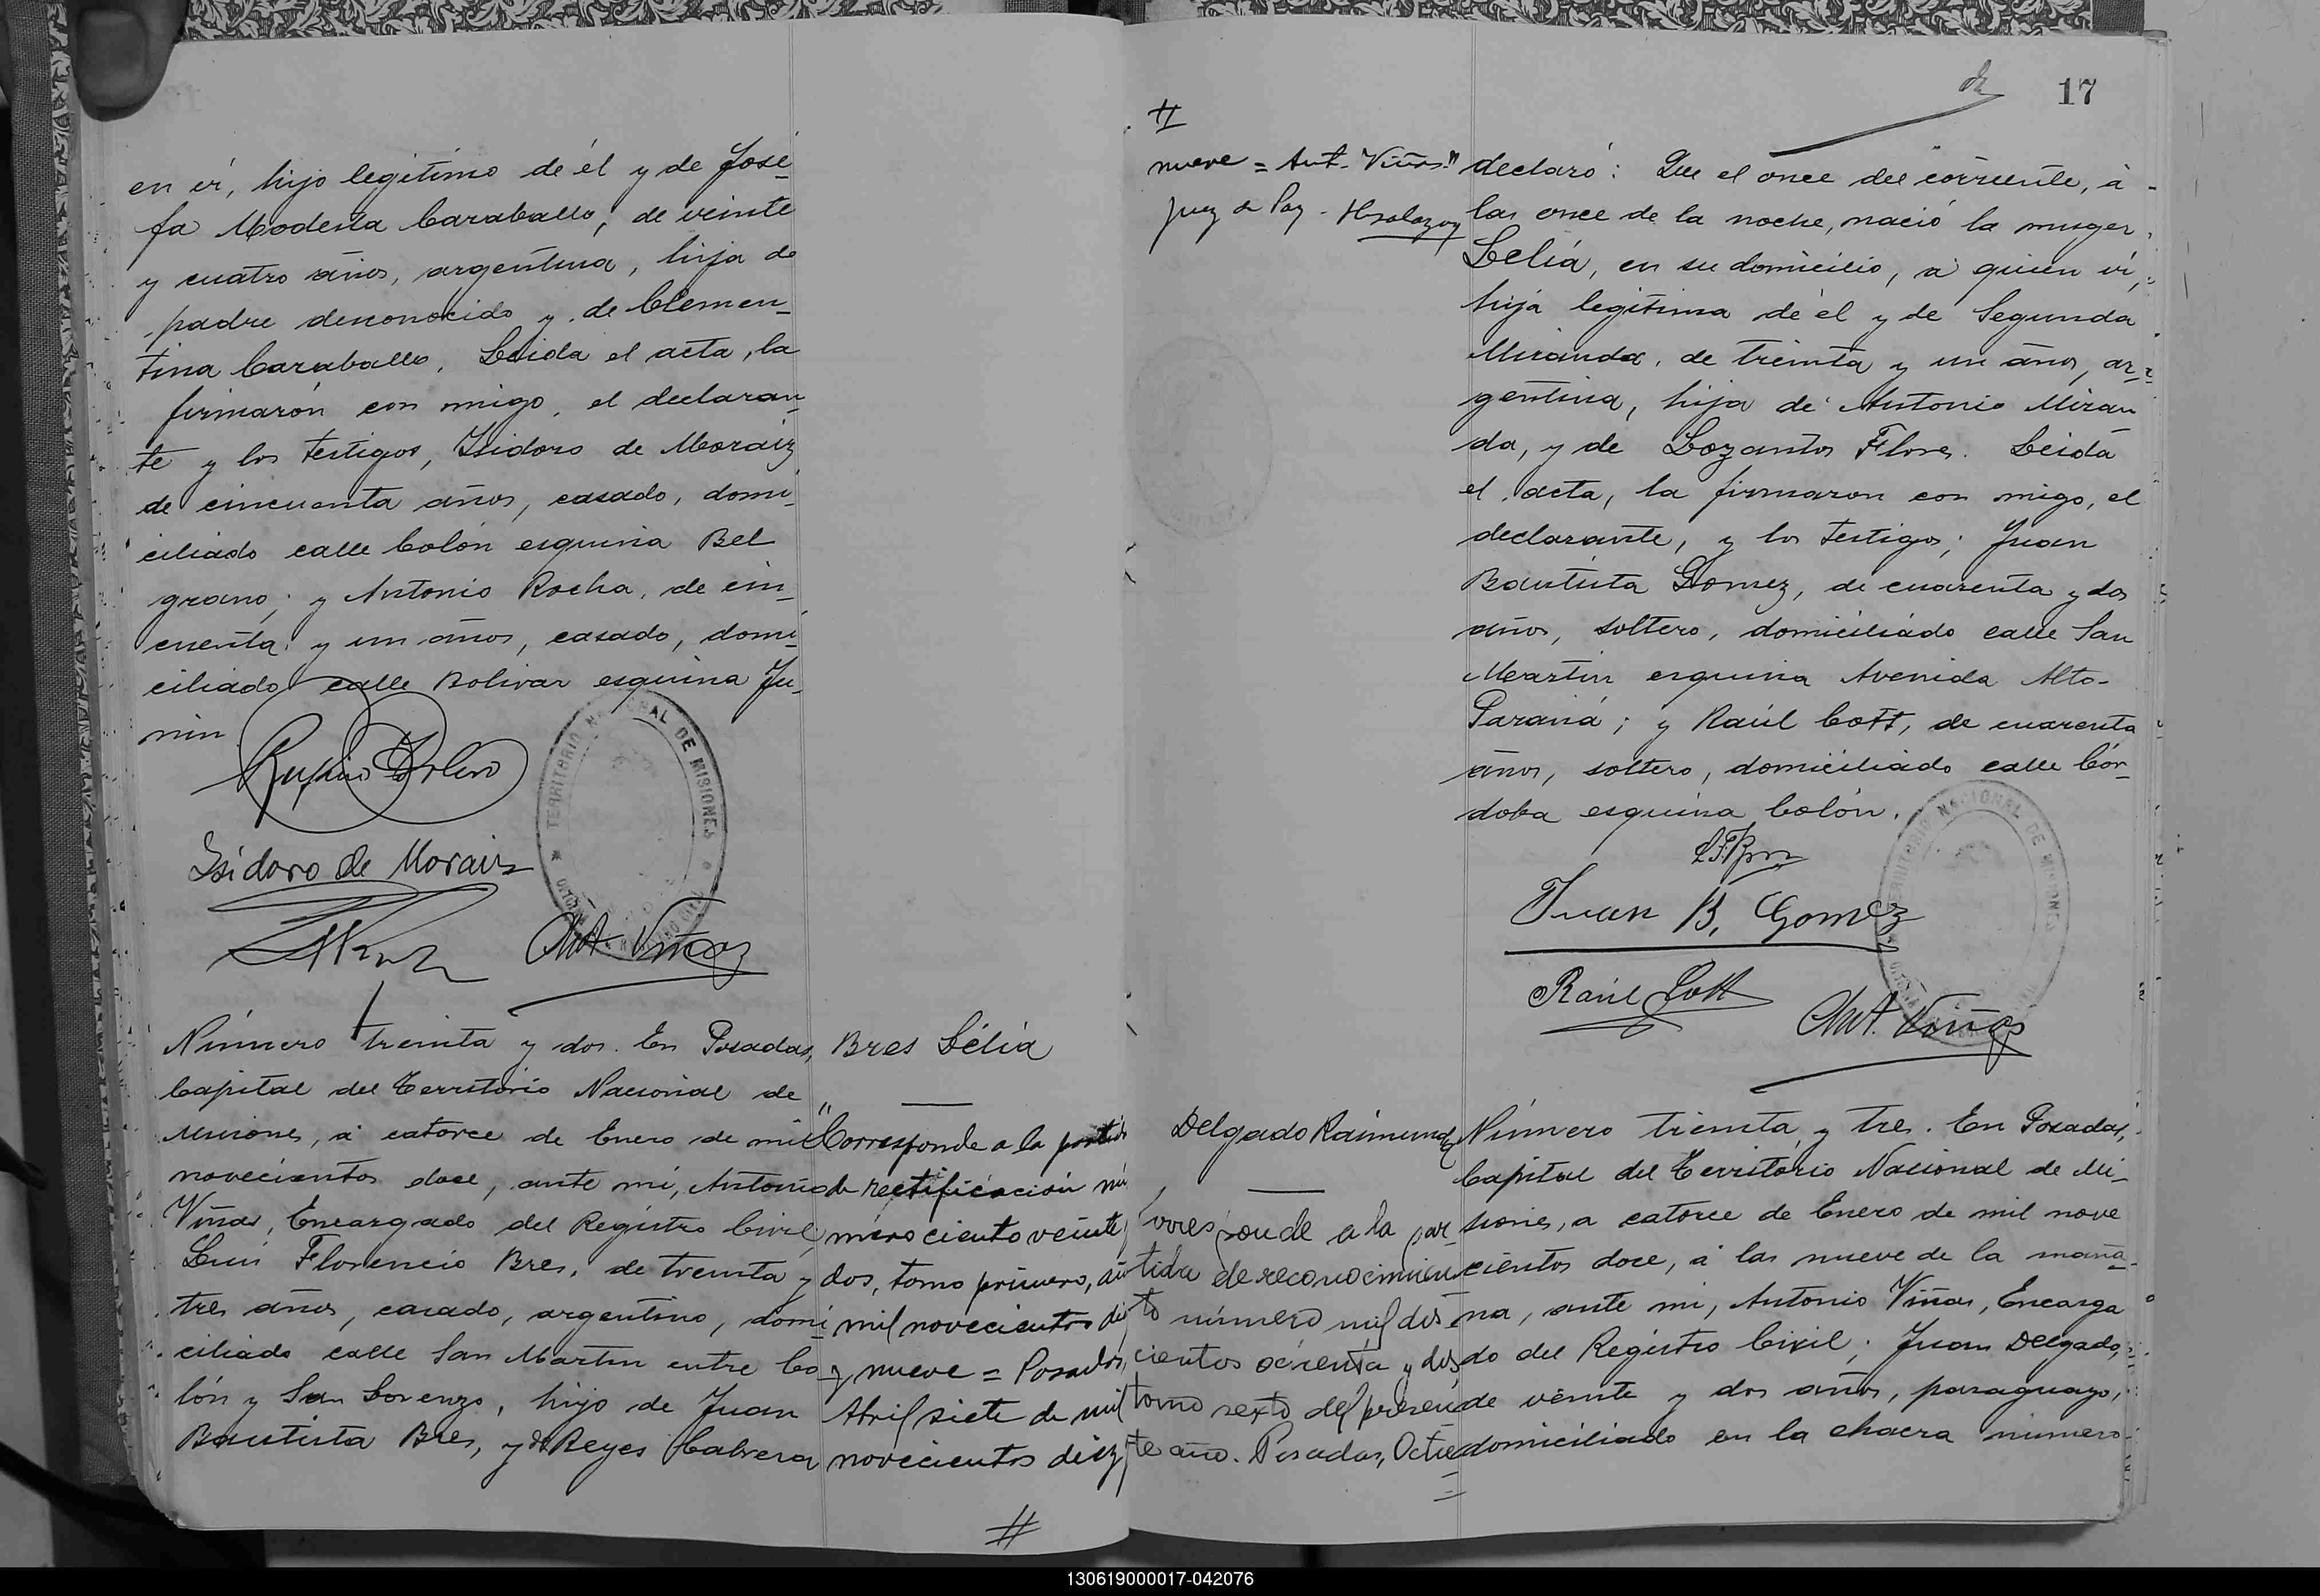 en ví, hijo legítimo de él y de Jose
fa Modesta Caraballo, de veinte
y cuatro años, argentina, hija de
padre desconocido y de Clemen_
tina Caraballo. Leida el acta, la
firmarón con migo, el declaran_
te y los testigos, Isidoro de Moraiz
de cincuenta años, casado, domi_
ciliado calle Colón esquina Bel
grano; y Antonio Rocha, de cin_
cuenta y un años, casado, domi_
ciliado calle Bolivar esquina Ju_
nin
TERRITORIO NACIONAL DE MISIONES
Isidoro de Moraiz
Ant. Viñas
Número treinta y dos. En Posadas,
Capital del Territorio Nacional de
Misiones, á catorce de Enero de mil
novecientos doce, ante mí, Antonio
Viñas, Encargado del Registro Civil;
Luis Florencio Bres, de treinta y
tres años, casado, argentino, domi_
ciliado calle San Martin entre Co_
lón y San Lorenzo, hijo de Juan
Bautista Bres, y de Reyes Cabrera
Bres Lélia
"Corresponde a la partida
de rectificación nú
mero ciento veinte
dos, tomo primero, añ
mil novecientos di
y nueve = Posadas,
Abril siete de mil
novecientos diez
#
17
#
nueve = Ant. Viñas"
Juez de Paz -
declaró: Que el once del corriente, á
las once de la noche, nació la muger
Lelia, en su domicilio, a quien ví,
hija legítima de él y de Segunda
Miranda, de treinta y un años, ar_
gentina, hija de Antonio Miran
da, y de Lozantos Flores. Leida
el acta, la firmaron con migo, el
declarante, y los testigos; Juan
Bautista Gomez, de cuarenta y dos
años, soltero, domiciliado calle San
Martin esquina Avenida Alto-
Paraná; y Raúl Cott, de cuarenta
años, soltero, domiciliado calle Cór_
doba esquina Colón.
TERRITORIO NACIONAL DE MISIONES
Juan B. Gomez
Raúl Cott
Ant. Viñas
Delgado Raimundo
Corresponde a la par
tida de reconocimien
to número mil dos
cientos ochenta y dos
tomo sexto del presen
te año. Posadas, Octu
=
Número treinta y tres. En Posadas,
Capital del Territorio Nacional de Mi_
siones, a catorce de Enero de mil nove
cientos doce, á las nueve de la maña_
na, ante mi, Antonio Viñas, Encarga
do del Registro Civil; Juan Delgado,
de veinte y dos años, paraguayo,
domiciliado en la chacra número
130619000017-042076